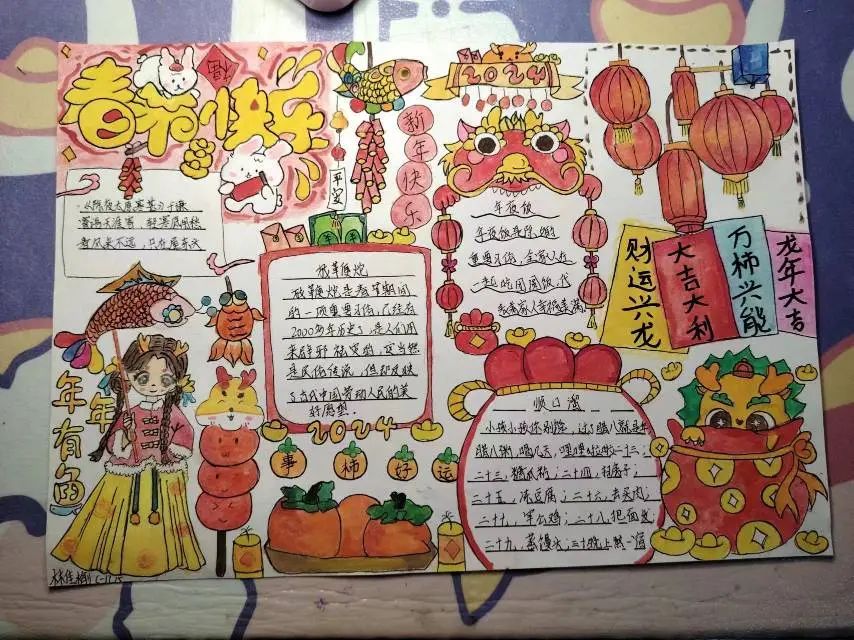 春节快乐
福
新年快乐
2024
平安
财运兴龙
大吉大利
万柿兴能
龙年大吉
年夜饭
年夜饭是除夕
一起吃团圆饭
放鞭炮
放鞭炮是春节期间
的一项重要习俗，已经有
2000多年历史了，是人们用
来辟邪祛灾的
是民俗传说，但却反映
了古代中国劳动人民的美
好愿望。
年年有鱼
2024
事柿好运
顺口溜
小孩小孩你别馋，过了腊八就是年
腊八粥，喝几天，哩哩啦啦二十三；
二十三，糖瓜粘；二十四，扫房子；
二十五，冻豆腐；二十六，去买肉；
二十七，宰公鸡；二十八，把面发
二十九，蒸馒头；三十晚上熬一宿